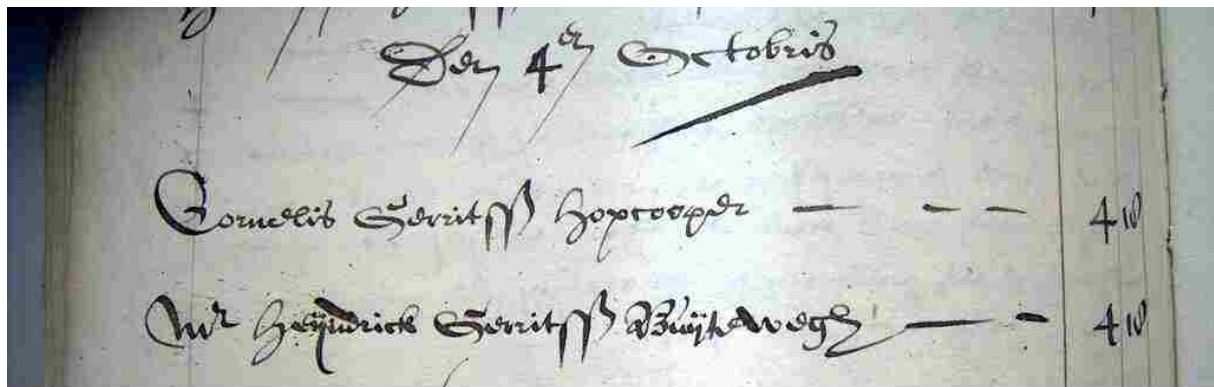 Den 4en Octobris
Cornelis Gerritss Hopcooper 4
Mr Heijndrick Gerritss Buijtewegh 4